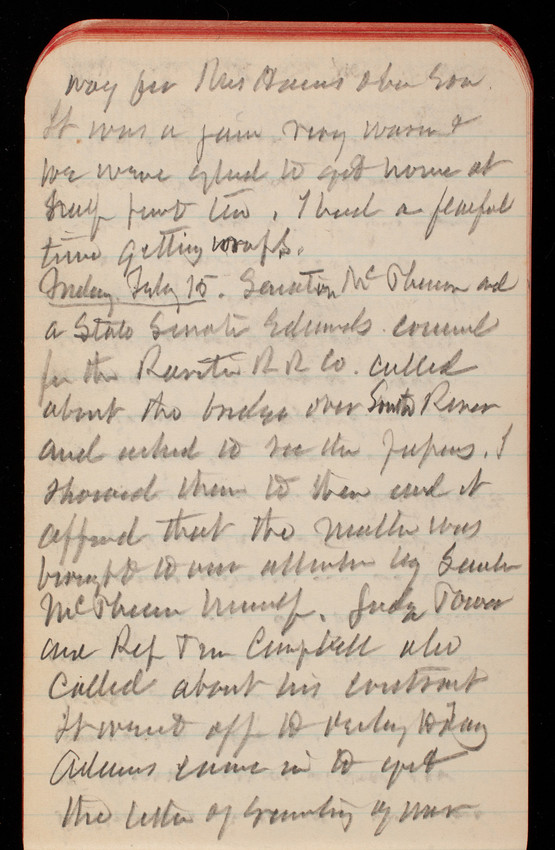 way for Mrs Harris
It was a fair very warm &
we were glad to get home at
half past ten. I had a fearful
time getting
Friday July 15. Senator McPherson and
a State Senator Edmunds counsel
for the Raritan R R Co. called
about the bridge over South River
and asked to see the papers. I
showed them to them and it
appeard that the matter was
brought to our attention by Senator
McPherson himself. Judge
and Rep Campbell also
called about his contract
It went off to
Adams came in to get
the letter of Secretary of war